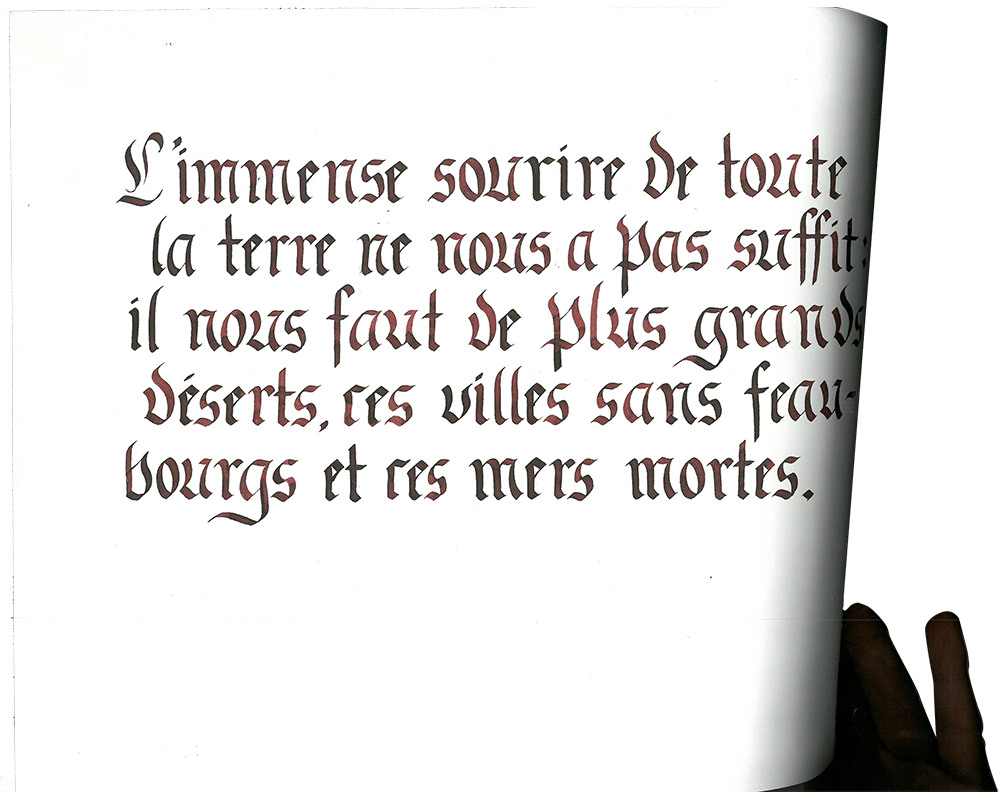 L'immense sourire de toute
la terre ne nous a pas suffit:
il nous faut de plus grands
déserts, ces villes sans feau-
bourgs et ces mers mortes.